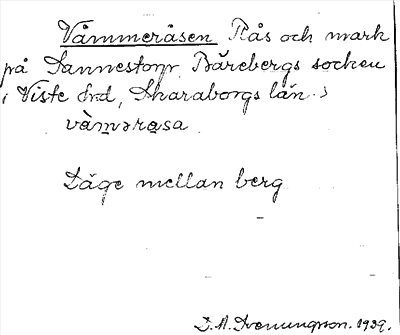 Våmmeråsen Ås och mark
på Sannestorp, Bärebergs socken
i Viste hrd, Skaraborgs län.
vàmərasa
Läge mellan berg
1939.